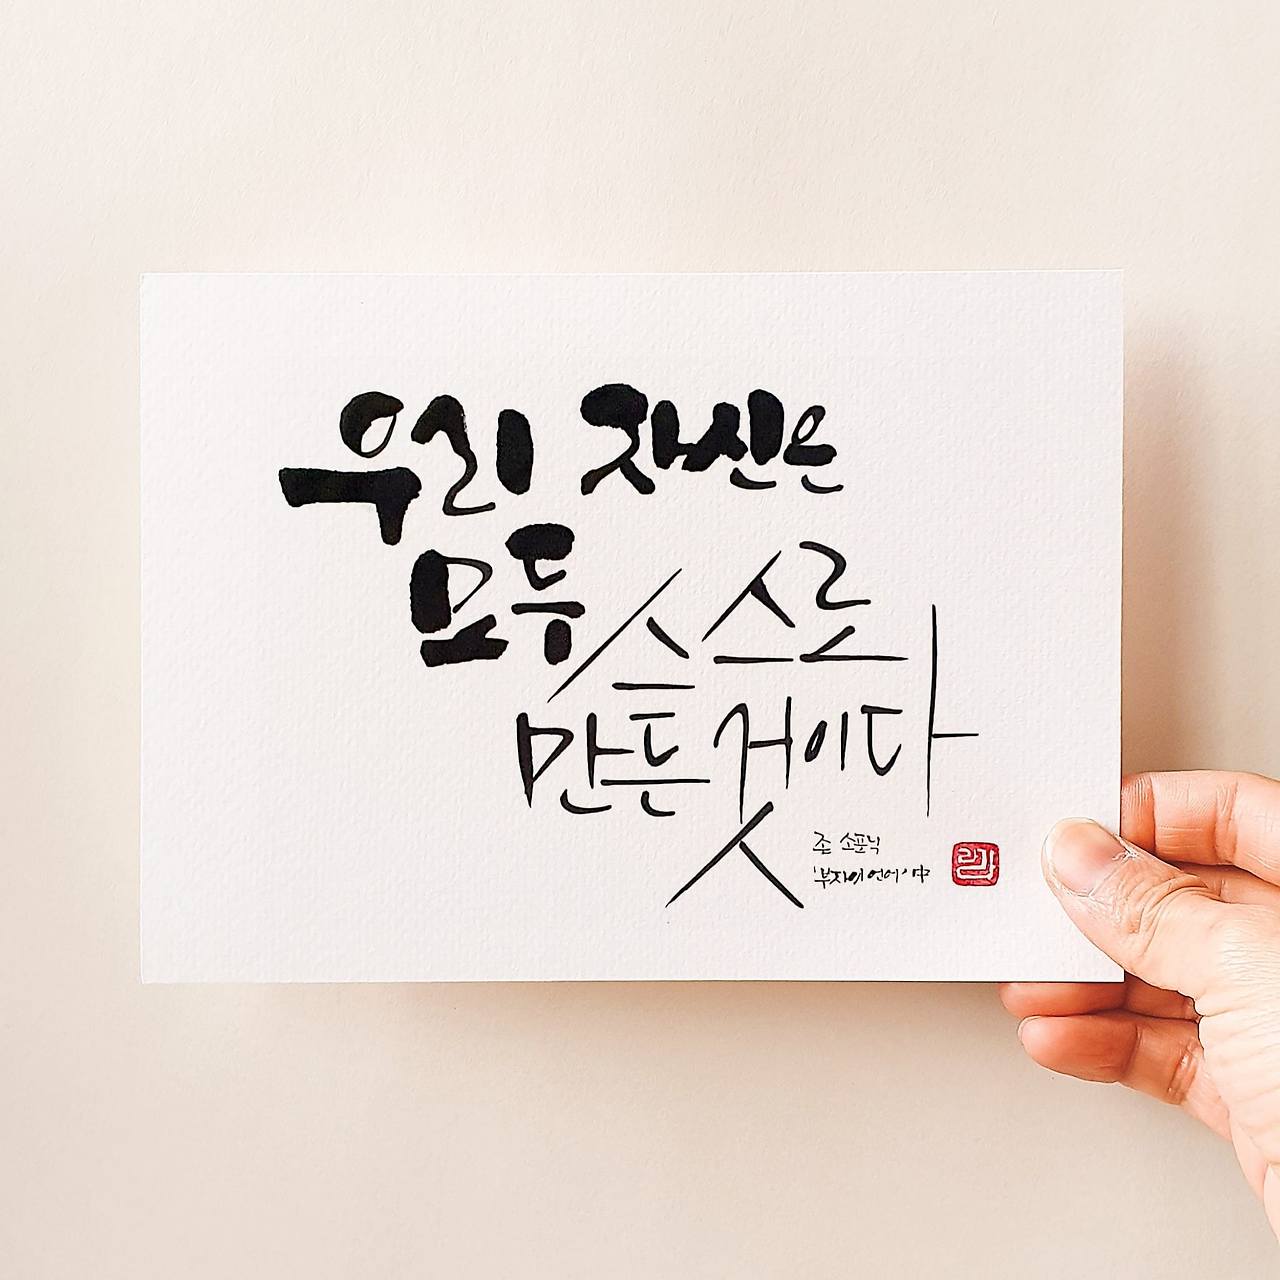 우리 자신은
모두 스스로
만든 것이다
존 소포닉
'부자의 언어' 中